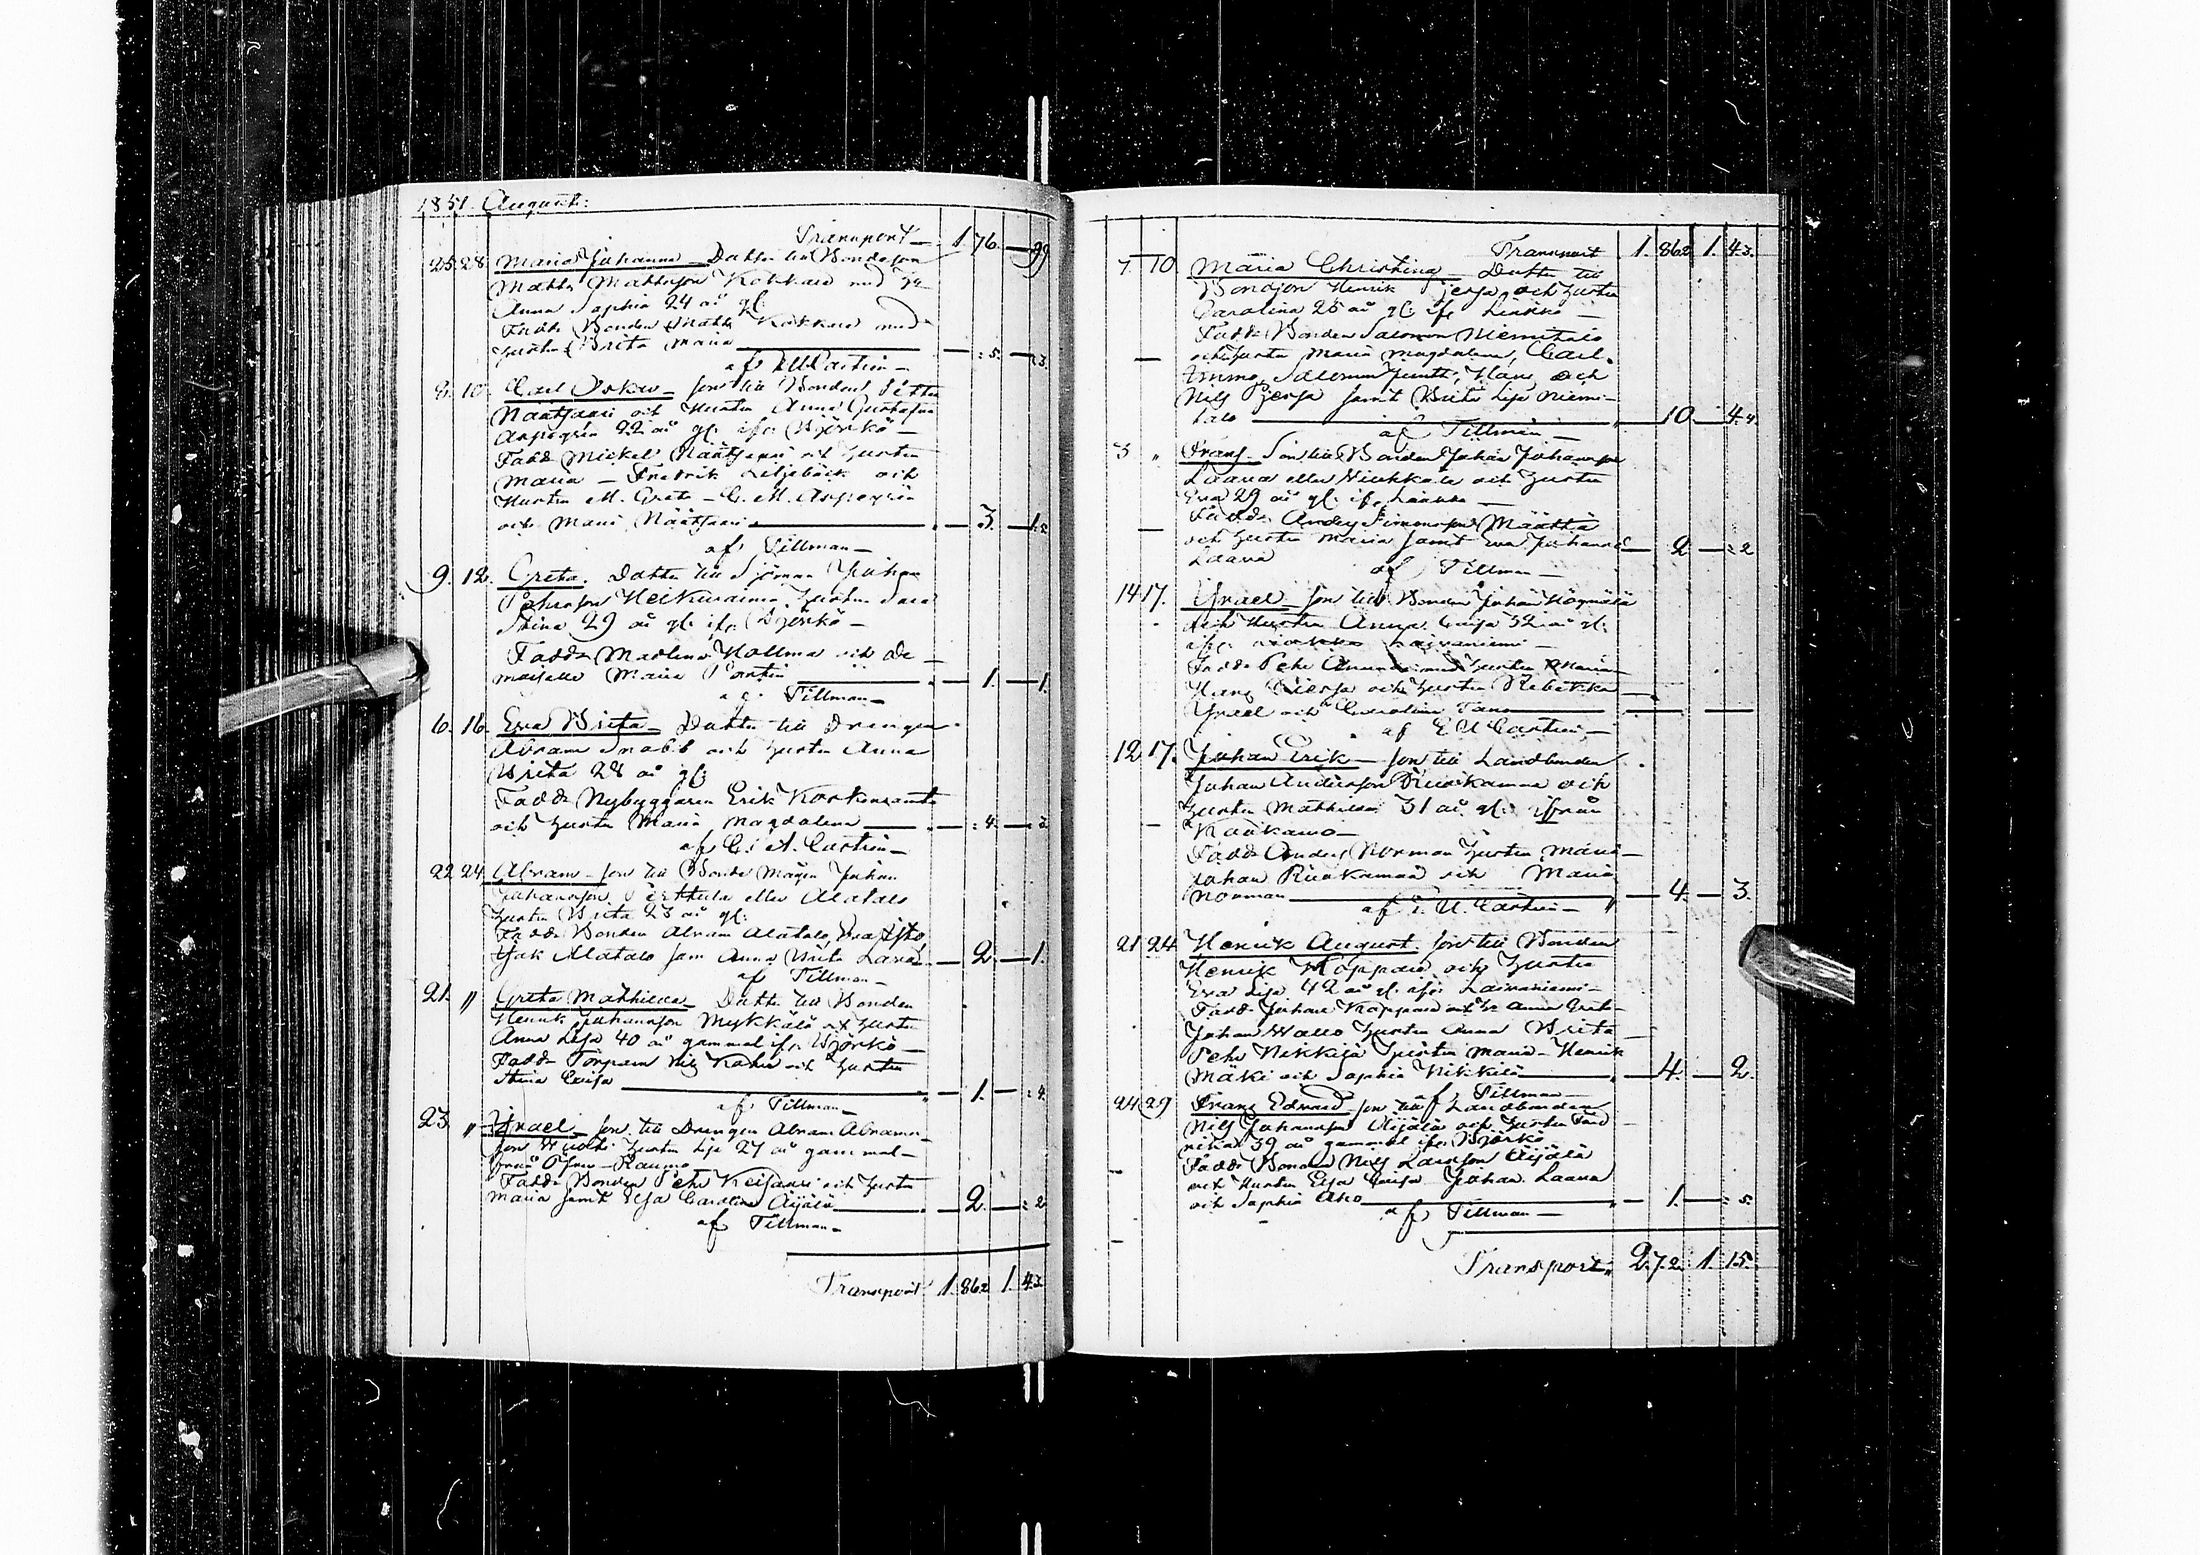 1851. Augusti:
Transport 1 76 — 99
25 28 Maria Johanna Dotter till Bondeson
Matts Mattsson Kokkare med Hu
Anna Sophia 24 år gl:
Fadd: Bonden Matts Kokkare med
Hustru Brita Maria — : 5. — : 3
af E U Castrén
8. 10. Carl Oskar Son till Bonden Petter
Näätsaari och Hustru Anna Gustafva
Aspegrén 22 år gl. ifr. Björkö
Fadd Mickel Näätsaari och Hustru
Maria — Fredrik Liljebäck och
Hustru M. Greta — C. M. Aspegrén
och Maria Näätsaari — 3. — 1.2
af Tillman
9. 12. Greta. Dotter till Sjöman Johan
Pehrsson Heikuraine Hustru Sara
Stina 29 år gl. ifr. Björkö
Fadd: Madlena Hollma och De-
moiselle Maria — 1. — 1.
af Tillman
6. 16. Eva Brita Dotter till Drängen
Abram Snabb och Hustru Anna
Brita 28 år gl:
Fadd: Nybyggaren Erik
och Hustru Maria Magdalena — : 4. — : 2
af E. U. Castrén
22 24 Abram Son till Bonde Mågen Johan
Johansson Perttula eller Alatalo
Hustru Brita 23 år gl.
Fadd: Bonden Abram Alatalo,
Isak Alatalo sam Anna Brita — 2. — 1.
af Tillman
21. " Greta Mathilda Dotter till Bonden
Henrik Johansson Mykkälä och Hustru
Anna Lisa 40 år gammal ifr. Björkö
Fadd: Torparn Nils och Hustru
Stina Caisa — 1. — : 4.
af Tillman
23. " Israel Son till Drängen Abram Abrams-
son Hustru Lisa 27 år gammal
från Öfver-Raumo
Fadd: Bonden Pehr Keisari och Hustru
Maria samt Elsa Carolina Äijälä — 2. — : 2
af Tillman
Transport 1. 862 1. 43
Transport 1. 862 1. 43.
7. 10 Maria Christina Dotter till
Bondson Henrik Pjersa och Hustru
Carolina 25 år gl: ifr Liakka
Fadd: Bonden Salomon Niemitalo
och Hustru Maria Magdalena, Carl
Salomon Juntti, Hans och
Nils Pjersa samt Brita Lisa Niemi-
talo — 10 — 4.4
af Tillman
3 " Frans Son till Bonden Johan Johansson
Laana eller och Hustru
Eva 29 år gl. ifr Liakka
Fadd: Anders Simonsson Määttä
och Hustru Maria samt Eva Johanna — 2 — : 2
Laana af Tillman
14 17. Israel Son till Bonden Johan Högmålä
och Hustru Anna Caisa 32 år gl:
ifr. Laivaniemi
Fadd: Pehr med Hustru Maria
Hans Pjersa och Hustru Rebekka
Israel och Carolina
af E U Castrén
12 17. Johan Erik Son till Landbonden
Johan Andersson Ruokamaa och
Hustru Mathilda 31 år gl. ifrån
Kaakamo
Fadd: Anders Norman Hustru Maria
Johan Ruokamaa och Maria
Norman — 4. — 3.
af E. U. Castrén
21 24 Henrik August Son till Bonden
Henrik Koppari och Hustru
Eva Lisa 42 år gl. ifr Laivaniemi
Fadd: Johan Koppari och Hu Anna Greta
Johan Wallo Hustru Anna Brita
Pehr Nikkilä Hustru Maria — Henrik
Mäki och Sophia Nikkilä — 4. — 2.
af Tillman
24 29 Frans Edvard Son till Landbonden
Nils Johansson Äijälä och Hustru Fred
rika 39 år gammal ifr. Björkö
Fadd: Bonden Nils Larsson Äijälä
och Hustru Elsa Caisa Johan Laana
och Sophia Aho — 1. — : 5.
af Tillman
Transport. 2.72. 1. 15.